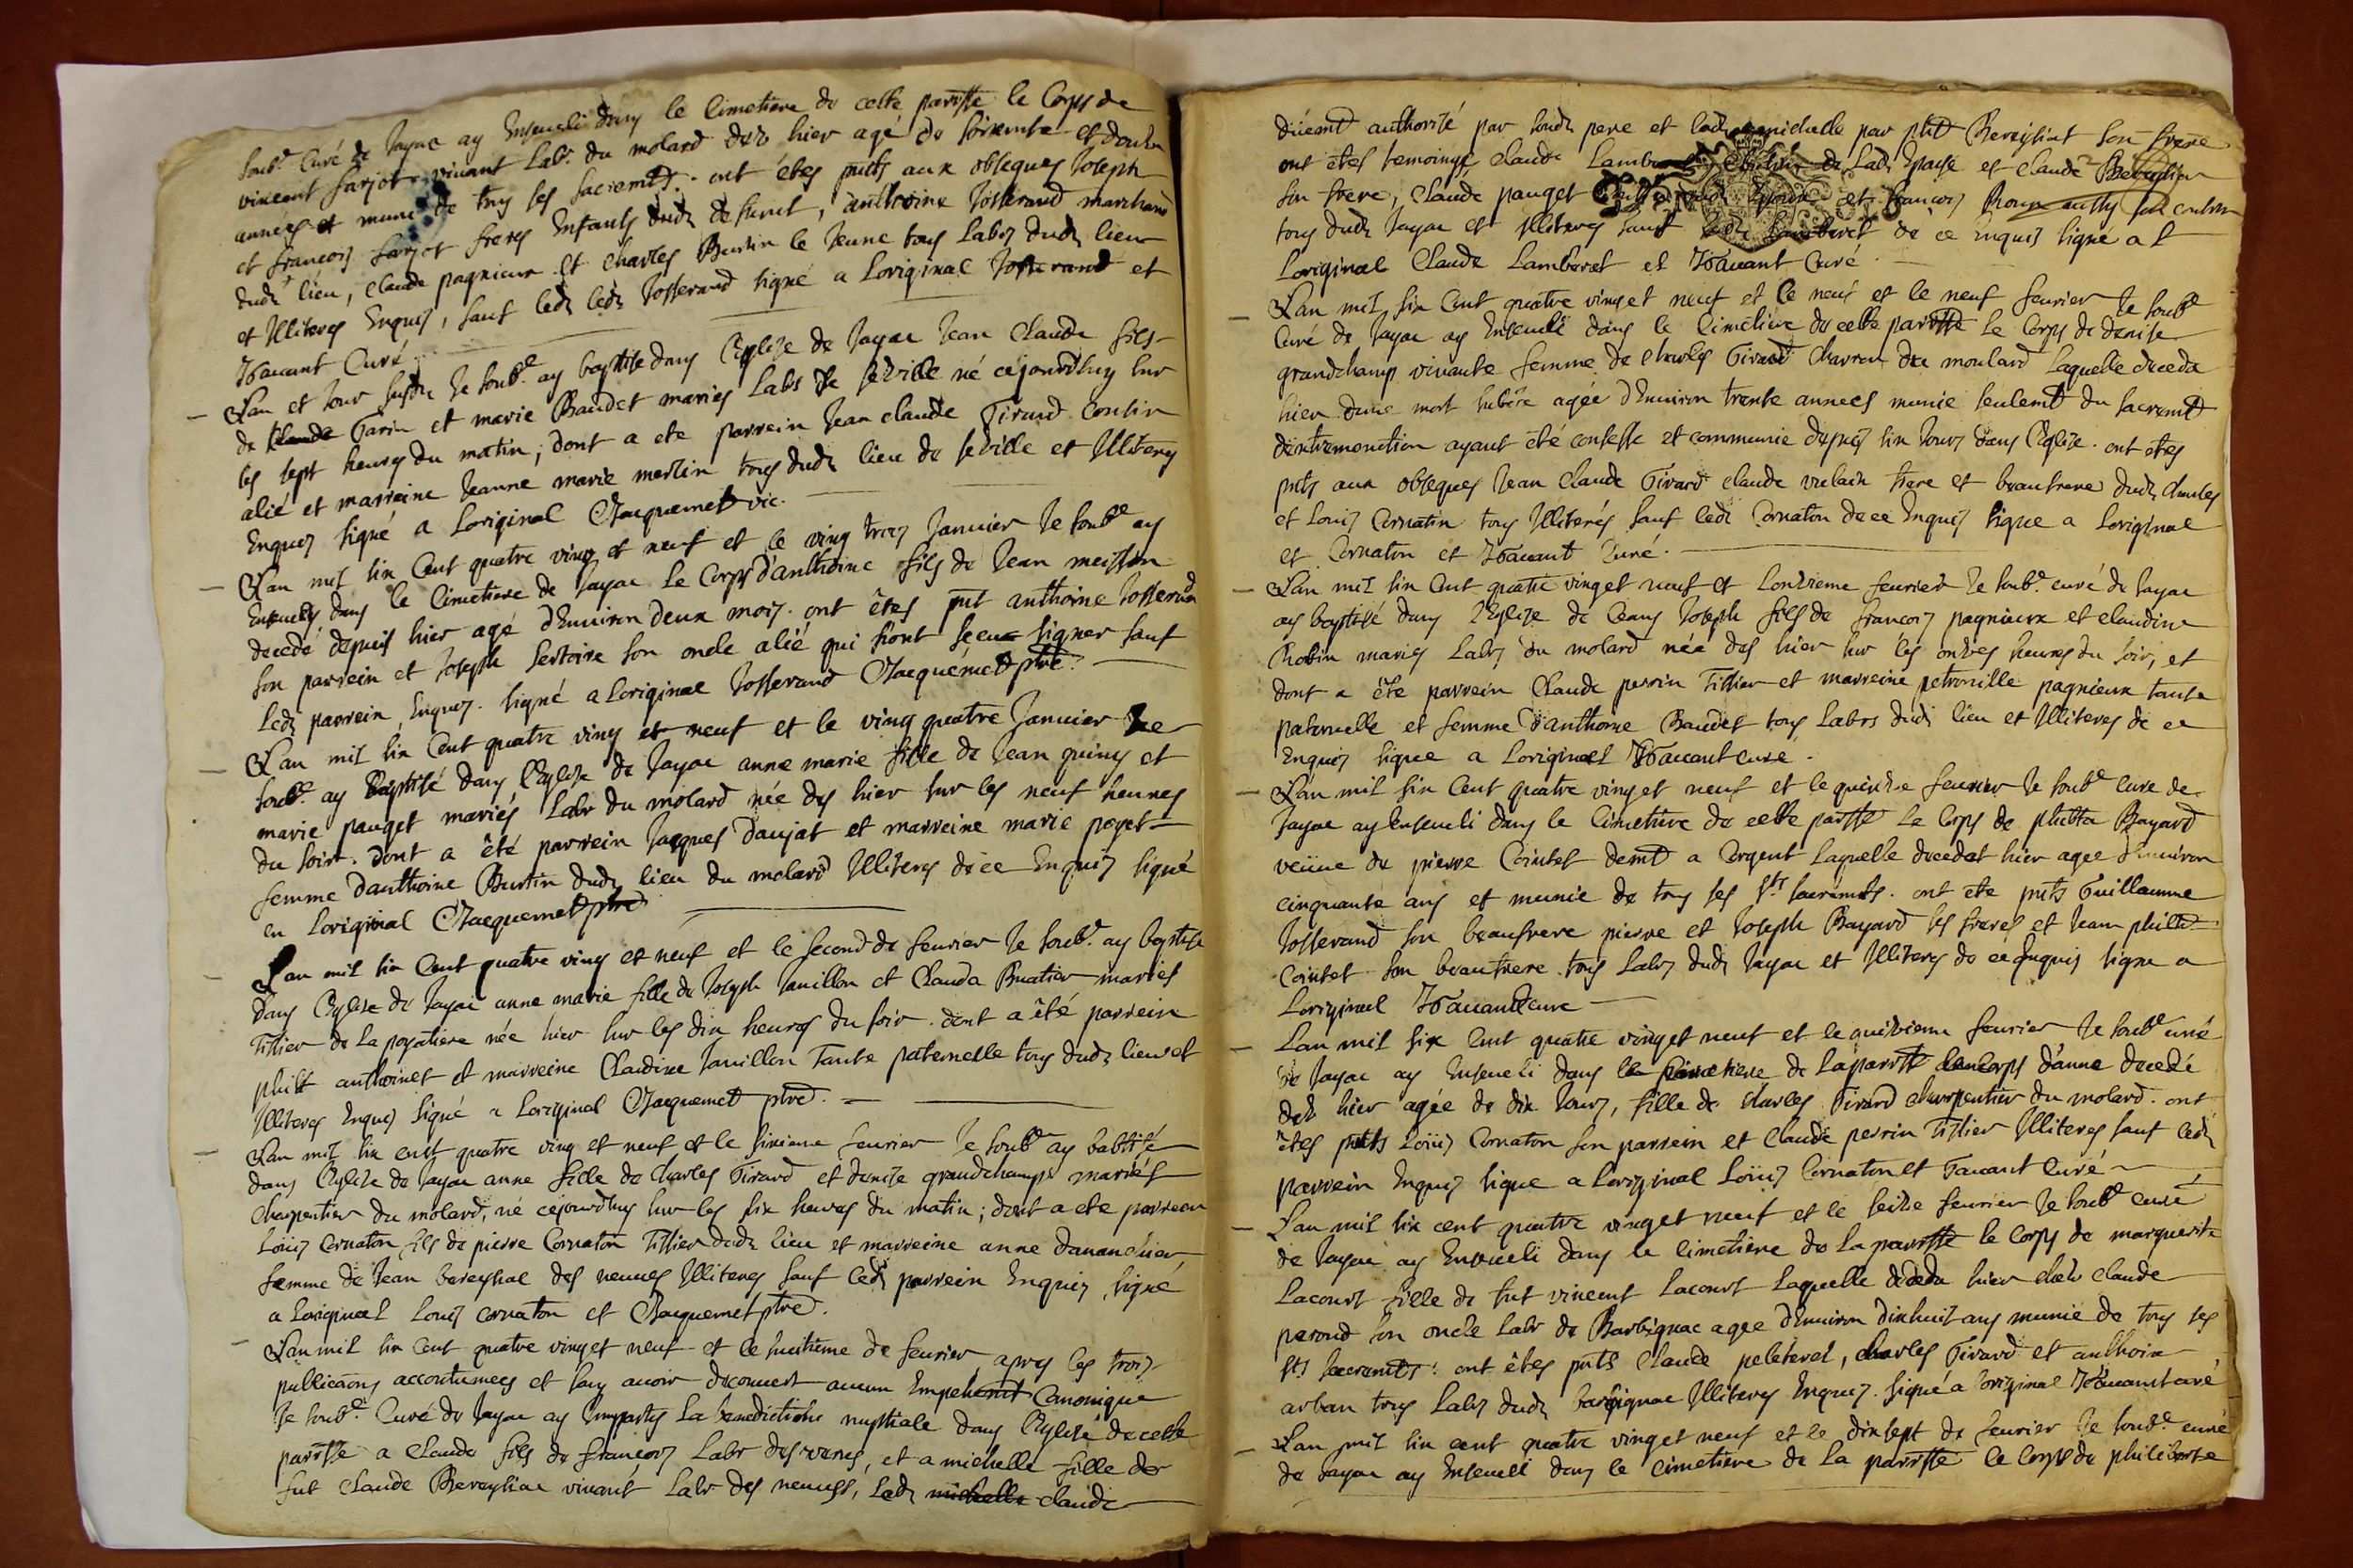 soub.e Curé de Jayac ay Enseueli dans le Cimetiere de cette parisse le Corps de
vincent farjot vivant Lab.r du molard dez hier agé de soixante et douze
années et muni de tous ses sacremts. ont étes pnts aux obseques Joseph
et françois farjot freres Enfants dudt defunct, anthoine Josserand marchand
dudt lieu, claude pagnieux et charles Burtin le Jeune tous Labrs dudt lieu
et Illiteres Enquis, sauf ledt Josserand signé a Loriginal Josserand et
Curé
Lan et Jour susdts Je soub.e ay baptise dans Eglise de Jayac Jean Claude fils
de Claude Garin et marie Baudet mariés Labrs de seville né cejourdhuy sur
les sept heures du matin; dont a ete parrein Jean claude Girard cousin
alié et marreine Jeanne marie merlin tous dudt lieu de seville et Illiteres
Enquis signé a Loriginal Chaquemet vic.
Lan mil six Cent quatre ving et neuf et le ving trois Januier Je soub.e ay
Enseuely dans le Cimetiere de Jayac le Corps d'anthoine fils de Jean meisson
decedé depuis hier agé d'Enuiron deux mois. ont êtes pnt anthoine Josserand
son parrein et Joseph Sertoire son oncle alié qui n'ont sceu signer sauf
Ledt parrein, Enquis. signé a Loriginal Josserand Chaquemet ptre.
Lan mil six Cent quatre ving et neuf et le ving quatre Januier Je
soub.e ay Baptisé dans l'Eglise de Jayac anne marie fille de Jean guiny et
marie pauget mariés Labr du molard née des hier sur les neuf heures
du soir. dont a été parrein Jacques Daujat et marreine marie poget
femme d'anthoine Burtin dudt lieu du molard Illiteres de ce Enquis signé
en Loriginal Chaquemet ptre
Lan mil six Cent quatre ving et neuf et le second de feurier Je soub.e ay baptisé
dans l'Eglise de Jayac anne marie fille de Joseph Jauillon et Clauda Buatier mariés
Tissier de La poyatiere née hier sur les dix heures du soir. dont a été parrein
philt anthoinet et marreine Claudine Jauillon Tante paternelle tous dudt lieu et
Illiteres Enquis signé a Loriginal Chaquemet ptre.
Lan mil six cent quatre ving et neuf et le sixieme feurier Je soub.e ay babtisé
dans l'Eglise de Jayac anne fille de Charles Girard et denise grandchamps mariés
Charpentier du molard, né cejourdhuy sur les six heures du matin; dont a ete parrein
Loüis Cornaton fils de pierre Cornaton Tissier dudt lieu et marreine anne
femme de Jean bereyhiat des neuues Illiteres sauf ledt parrein Enquis, signé
a Loriginal Louis cornaton et Chaquemet ptre.
Lan mil six Cent quatre ving et neuf et le huitieme de feurier apres les trois
publicaôns accoutumees et sans auoir decouuert aucun Empehemt Canonique
Je soub.e Curé de Jayac ay Imparty la benediction nuptiale dans l'Eglise de cette
parisse a Claude fils de françois Labr des, et a michelle fille de
fut Claude Bereyhiac viuant Labr des neuues, Ledt michelle claude
düemt authorisé par sondt pere et ladt michelle par philt Bereyhiat son frere
ont étes temoings Claude Lamberet de Ladt Epouse et Claude Bereyhiat
son frere, Claude pauget et françois
tous dudt Jayac et Illiteres sauf ledt Lamberet de ce Enquis signé a L
Loriginal Claude Lamberet et Curé
Lan mil six Cent quatre ving et neuf et le neuf et le neuf feurier Je soub.e
Curé de Jayac ay Enseueli dans le Cimetiere de cette parisse Le Corps de denise
grandchamp viuante femme de charles Girard charron du moulard Laquelle deceda
hier d'une mort subite agée d'Enuiron trente annees munie seulemt du sacremt
d'extremonction ayant été confesse et communie depuis six Jours dans l'Eglise. ont étes
pnts aux obseques Jean Claude Girard claude vulain frere et beaufrere dudt charles
et Louis Cornatin tous Illiterés sauf ledt Cornaton de ce Enquis signe a Loriginal
et Cornaton et Curé.
Lan mil six Cent quatre ving et neuf et Lonzieme feurier Je soub.e curé de Jayac
ay baptisé dans l'Eglise de Ceans Joseph fils de françois pagnieux et claudine
Robin mariés Labrs du molard née des hier sur les onzes heures du soir, et
dont a éte parrein Claude perrin Tissier et marreine petronille pagnieux tante
paternelle et femme d'anthoine Baudet tous Labrs dudt lieu et Illiteres de ce
Enquis signe a Loriginal Cure.
Lan mil six Cent quatre ving et neuf et le quinze feurier Je soub.e cure de
Jayac ay Enseueli dans le Cimetiere de cette parisse Le Corps de philtta Bayard
veüue de pierre Cointet demt a Corgent Laquelle decedat hier agee d'Enuiron
cinquante ans et munie de tous les sts sacremts. ont ete pnts Guillaume
Josserand son beaufrere pierre et Joseph Bayard ses freres et Jean philt
Cointet son beaufrere tous Labrs dudt Jayac et Illiteres de ce Enquis signe a
Loriginal cure
Lan mil six Cent quatre ving et neuf et le quinzieme feurier Je soub.e curé
de Jayac ay Enseueli dans le Cimetiere de La parisse le corps d'anne decedé
dez hier agée de dix Jours, fille de charles Girard charpentier du molard. ont
étes pnts Loüis Cornaton son parrein et Claude perrin Tissier Illiteres sauf ledt
parrein Enquis signe a Loriginal Loüis Cornaton et Curé
Lan mil six cent quatre ving et neuf et le seize feurier Je soub.e curé
de Jayac ay Enseueli dans le cimetiere de La parisse le corps de marguerite
Lacourt fille de fut vincent Lacourt Laquelle deceda hier chez claude
peroud son oncle Labr de Barbignac agee d'Enuiron dixhuit ans munie de tous ses
sts sacremts. ont étes pnts Claude peleteret, charles Girard et anthoine
arban tous Labrs dudt barbignac Illiteres Enquis. signé a Loriginal curé
Lan mil six cent quatre ving et neuf et le dixsept de feurier Je soub.e curé
de Jayac ay Enseueli dans le Cimetiere de La parisse le Corps de philiberte